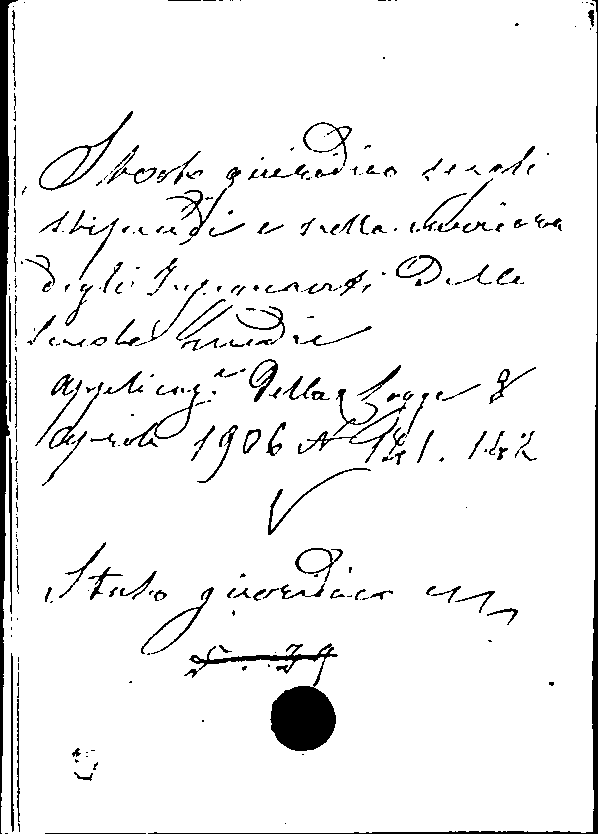 Stato giuridico degli
stipendi e della carriera
degli Insegnanti Delle
Scuole Medie
applicaz.e Della Legge 8
Aprile 1906 N 141. 142
Stato giuridico